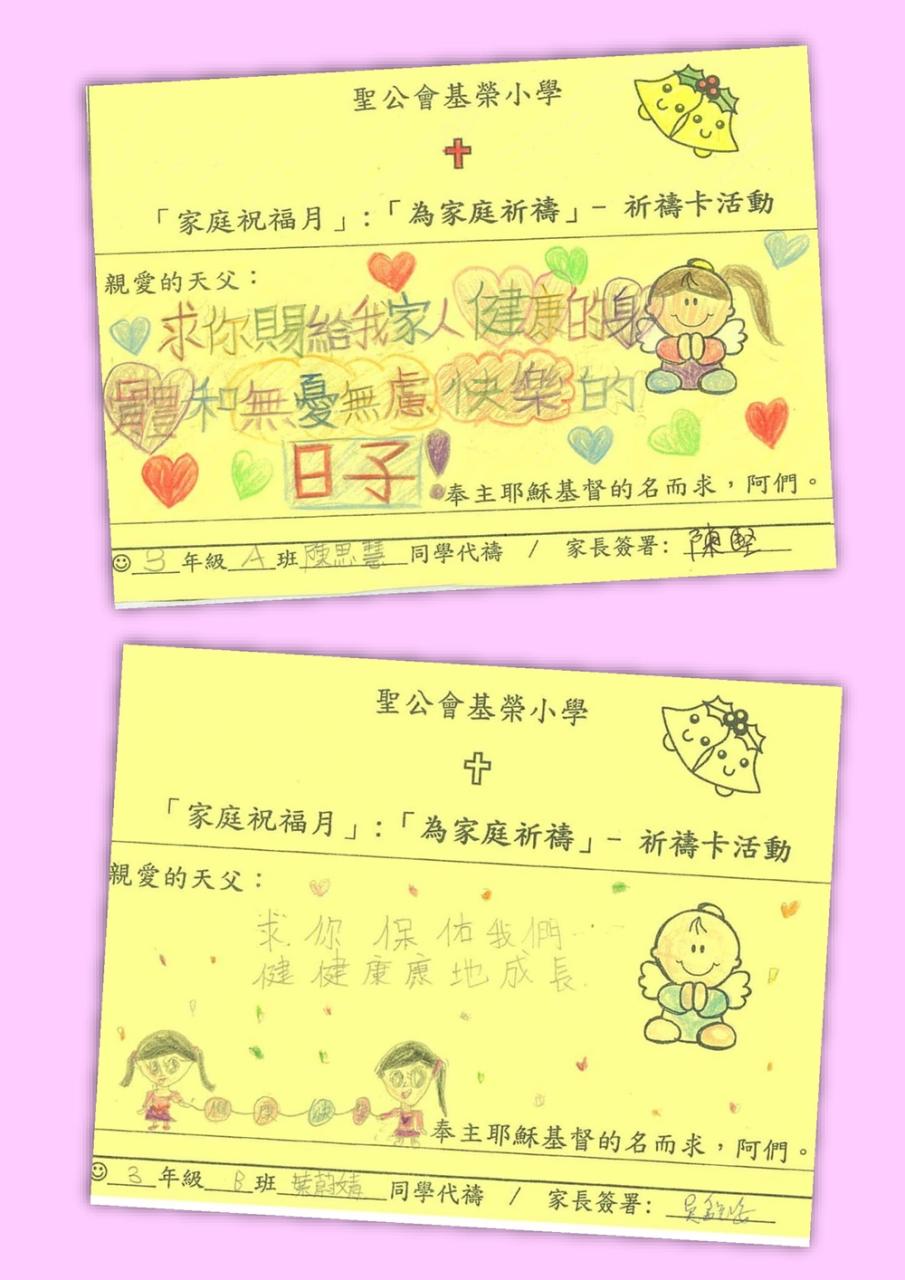 聖公會基榮小學
「家庭祝福月」:「為家庭祈禱」- 祈禱卡活動
親愛的天父：
求你賜給我家人健康的身
體和無憂無慮快樂的
日子!
奉主耶穌基督的名而求，阿們。
3 年級 A 班 陳思慧 同學代禱 / 家長簽署: 陳堅
聖公會基榮小學
「家庭祝福月」:「為家庭祈禱」- 祈禱卡活動
親愛的天父：
求你保佑我們
健健康康地成長
健康
奉主耶穌基督的名而求，阿們。
3 年級 B 班 葉蔚婧 同學代禱 / 家長簽署: 吳